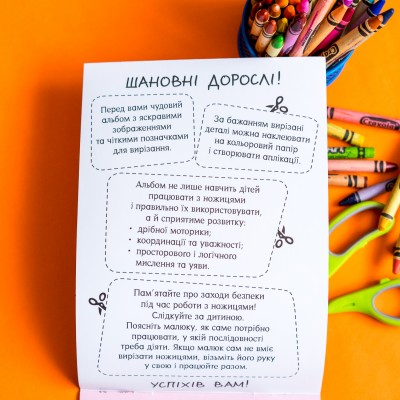 ШАНОВНІ ДОРОСЛІ!
Перед вами чудовий
альбом з яскравими
зображеннями
та чіткими позначками
для вирізання.
За бажанням вирізані
деталі можна наклеювати
на кольоровий папір
і створювати аплікації.
Альбом не лише навчить дітей
працювати з ножицями
і правильно їх використовувати,
а й сприятиме розвитку:
• дрібної моторики;
• координації та уважності;
• просторового і логічного
мислення та уяви.
Пам'ятайте про заходи безпеки
під час роботи з ножицями!
Слідкуйте за дитиною.
Поясніть малюку, як саме потрібно
працювати, у якій послідовності
треба діяти. Якщо малюк сам не вміє
вирізати ножицями, візьміть його руку
у свою і працюйте разом.
УСПІХІВ ВАМ!
Crayola